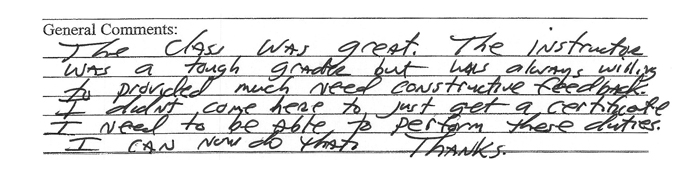 General Comments:
The class was great. The instructor
was a tough grader but was always willing
to provided much need constructive feedback.
I didn't come here to just get a certificate
I need to be able to perform these duties.
I can now do that. Thanks.